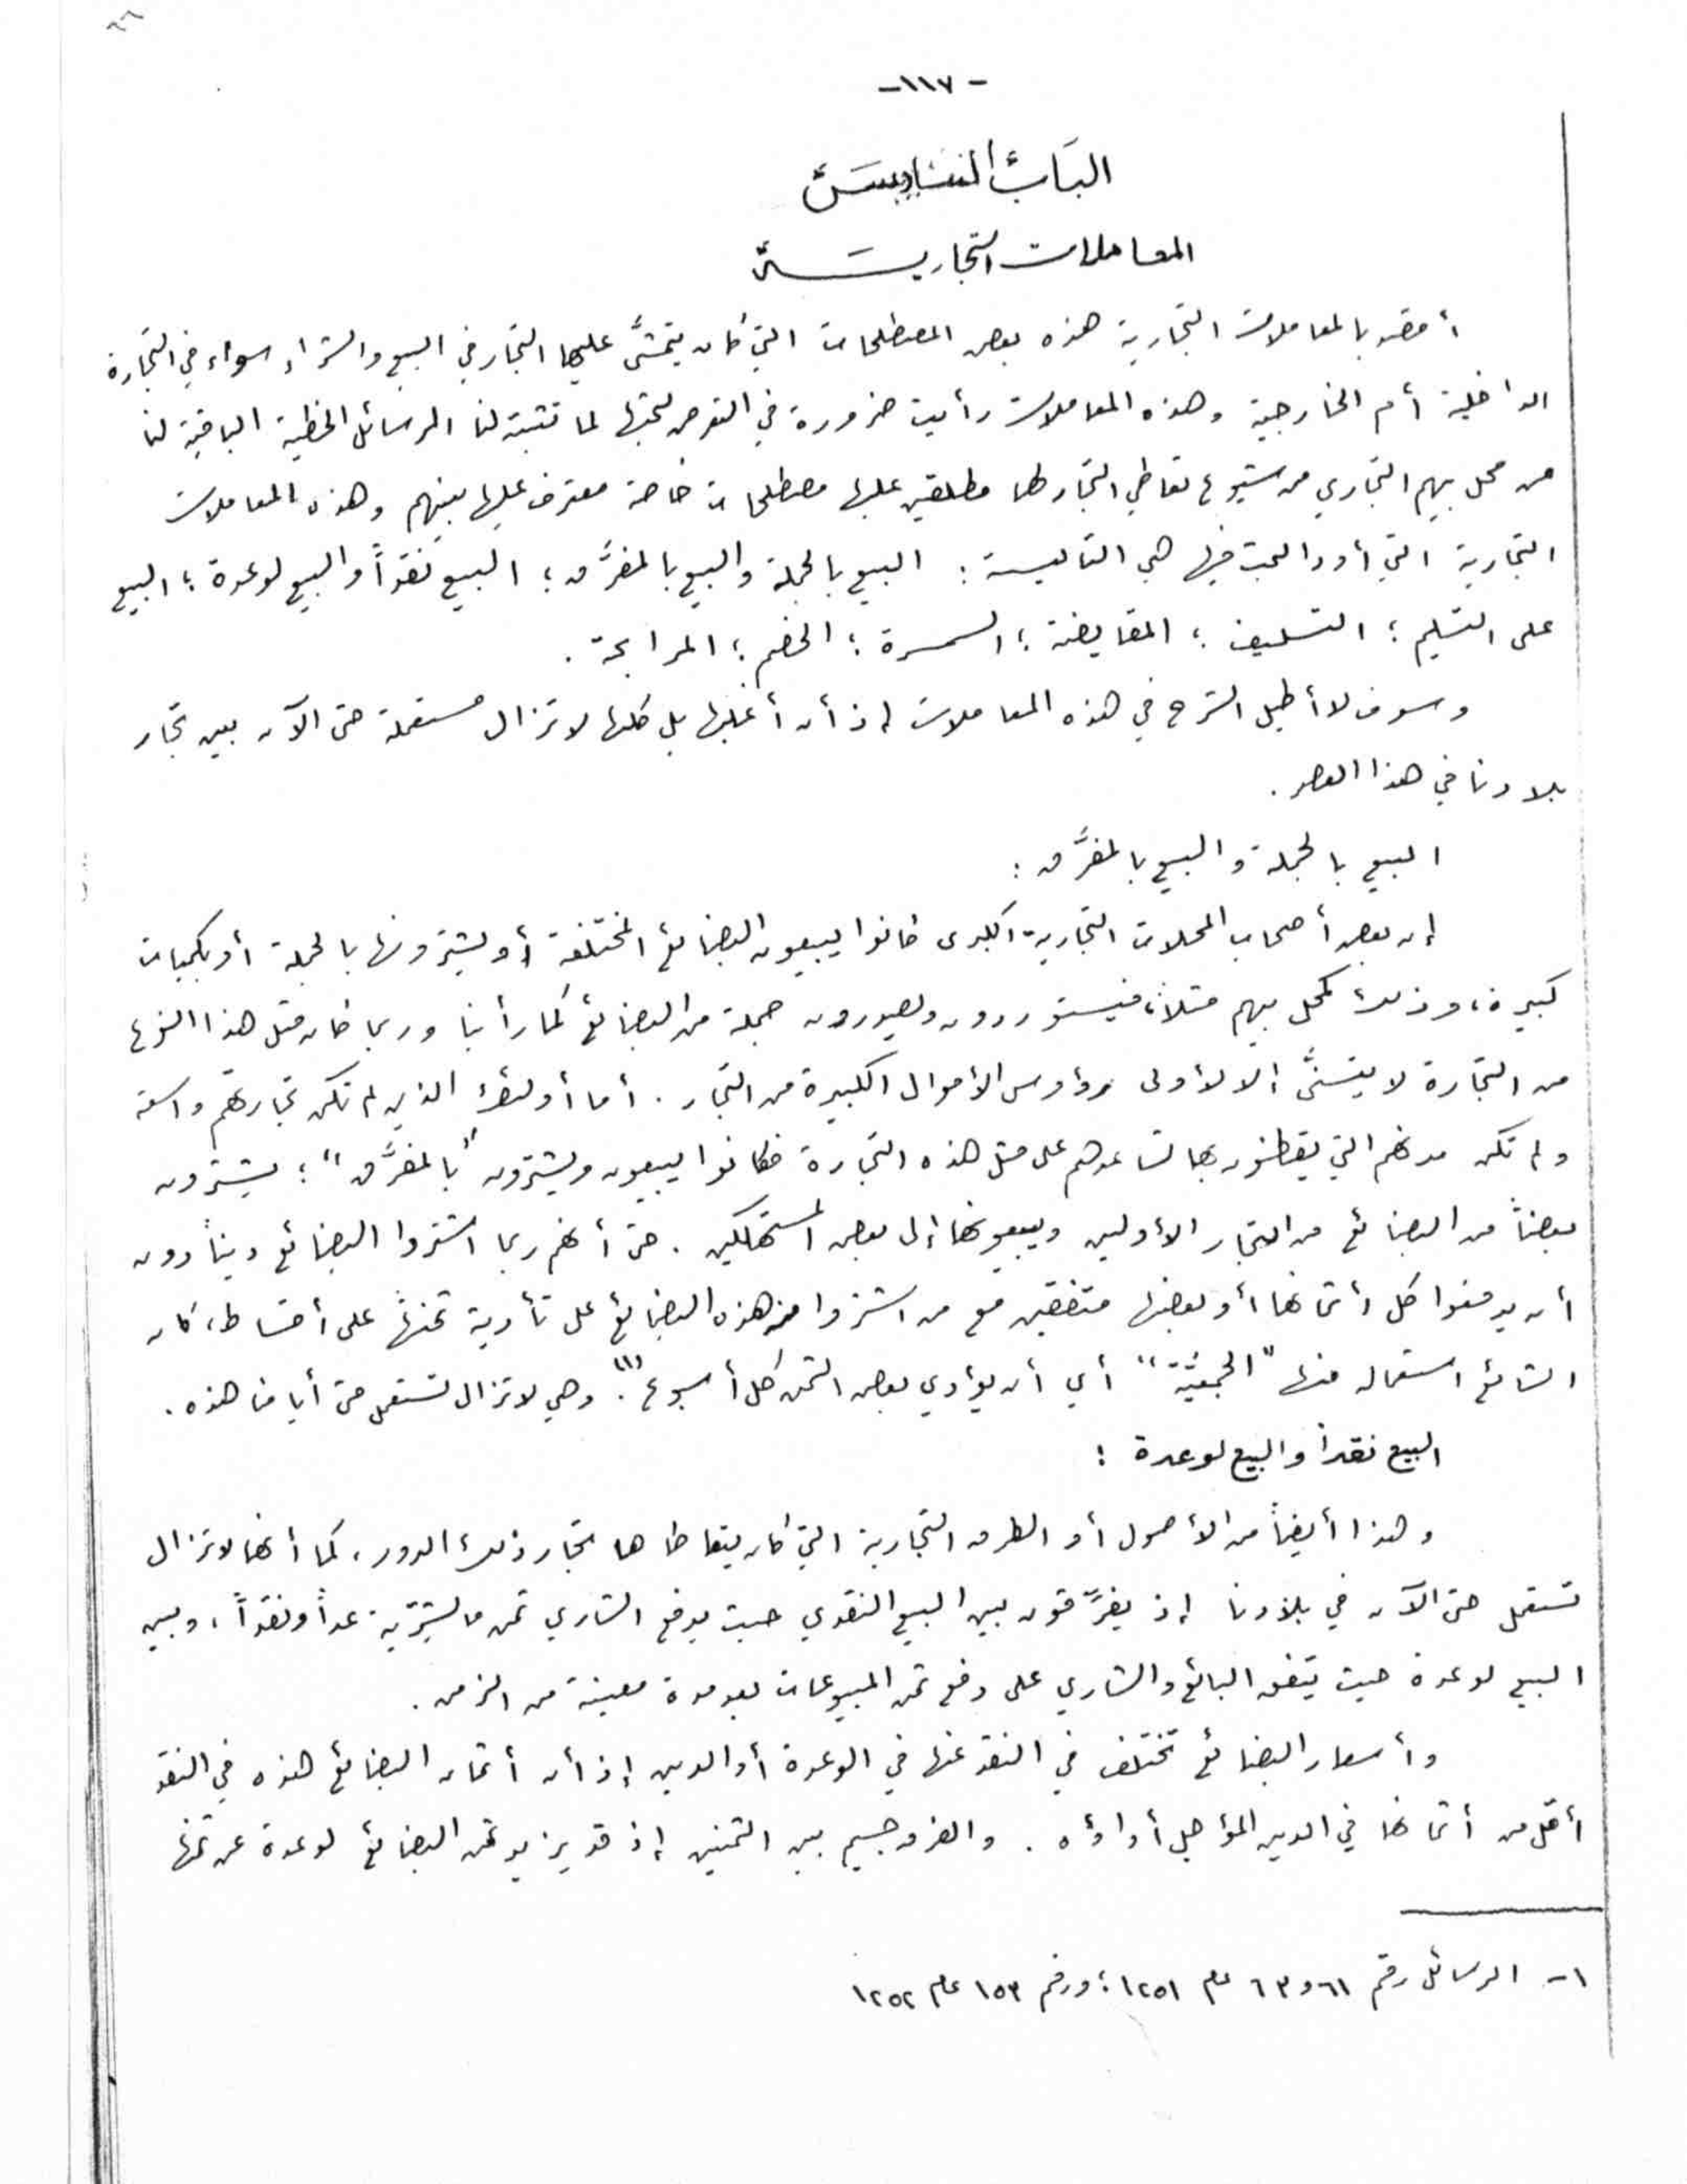 -١١٧-
الباب السادس
المعاملات التجارية
أقصد بالمعاملات التجارية هذه بعض المصطلحات التي كان يتمشَّى عليها التجار في البيع والشراء سواء في التجارة
الداخلية أم الخارجية وهذه المعاملات رأيت ضرورة في التعرض لبحثها لما تثبته لنا الرسائل الخطية الباقية لنا
من محل بيهم التجاري من شيوع تعاطي التجار لها مطلقين عليها مصطلحات خاصة معترف عليها بينهم وهذه المعاملات
التجارية التي أود البحث فيها هي التاليـة : البيع بالجملة والبيع بالمفرَّق ؛ البيع نقداً والبيع لوعدة ؛ البيع
على التسليم ؛ التسليف ؛ المقايضة ؛ السمسرة ؛ الخصم ؛ المرابحة .
وسوف لا أطيل الشرح في هذه المعاملات إذ أن أغلبها بل كلها لا تزال مستعملة حتى الآن بين تجار
بلادنا في هذا العصر .
البيع بالجملة والبيع بالمفرَّق :
إن بعض أصحاب المحلات التجارية الكبرى كانوا يبيعون البضائع المختلفة أو يشترونها بالجملة أو بكميات
كبيرة، وذلك كمحل بيهم مثلاً، فيستوردون ويصدرون جملة من البضائع كما رأينا وربما كان مثل هذا النوع
من التجارة لا يتسنَّى إلا لأولى رؤوس الأموال الكبيرة من التجار . أما أولئك الذين لم تكن تجارتهم واسعة
ولم تكن مدنهم التي يقطنون بها تساعدهم على مثل هذه التجارة فكانوا يبيعون ويشترون "بالمفرَّق" ؛ يشترون
بعضاً من البضائع من التجار الأولين ويبيعونها إلى بعض المستهلكين . حتى أنهم ربما اشتروا البضائع ديناً دون
أن يدفعوا كل أثمانها أو بعضها متفقين مع من اشتروا منه هذه البضائع على تأدية ثمنها على أقساط، كان
الشائع استعماله منها "الجمعيَّة" أي أن يؤدي بعض الثمن كل أسبوع (١). وهي لا تزال تستعمل حتى أيامنا هذه .
البيع نقداً والبيع لوعدة :
وهذا أيضاً من الأصول أو الطرق التجارية التي كان يتعاطاها تجار ذلك الدور ، كما أنها لا تزال
تستعمل حتى الآن في بلادنا إذ يفرِّقون بين البيع النقدي حيث يدفع الشاري ثمن ما يشتريه عداً ونقداً ، وبين
البيع لوعدة حيث يتفق البائع والشاري على دفع ثمن المبيوعات بعد مدة معينة من الزمن .
وأسعار البضائع تختلف في النقد عنها في الوعدة أو الدين إذ أن أثمان البضائع هذه في النقد
أقل من أثمانها في الدين المؤجل أداؤه . والفرق جسيم بين الثمنين إذ قد يزيد ثمن البضائع لوعدة عن ثمنها
١- الرسائل رقم ٦١ و ٦٣ عام ١٢٥١ ؛ ورقم ١٥٣ عام ١٢٥٢